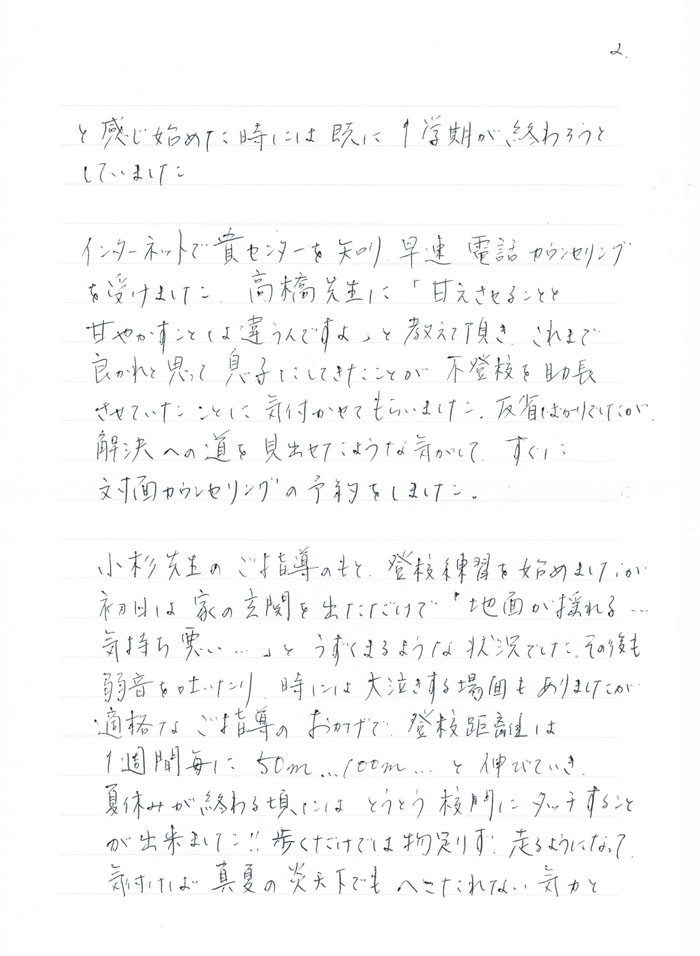 2.
と感じ始めた時には既に1学期が終わろうと
していました
インターネットで貴センターを知り、早速電話カウンセリング
を受けました。高橋先生に「甘えさせることと
甘やかすことは違うんですよ」と教えて頂き、これまで
良かれと思って息子にしてきたことが不登校を助長
させていたことに気付かせてもらいました。反省ばかりでしたが、
解決への道を見出せたような気がして、すぐに
対面カウンセリングの予約をしました。
小杉先生のご指導のもと、登校練習を始めましたが
初日は家の玄関を出ただけで「地面が揺れる…
気持ち悪い…」とうずくまるような状況でした。その後も
弱音を吐いたり、時には大泣きする場面もありましたが
適格なご指導のおかげで、登校距離は
1週間毎に50m…100m…と伸びていき、
夏休みが終わる頃にはとうとう校門にタッチすること
が出来ました!!歩くだけでは物足りず、走るようになって、
気付けば真夏の炎天下でもへこたれない気力と